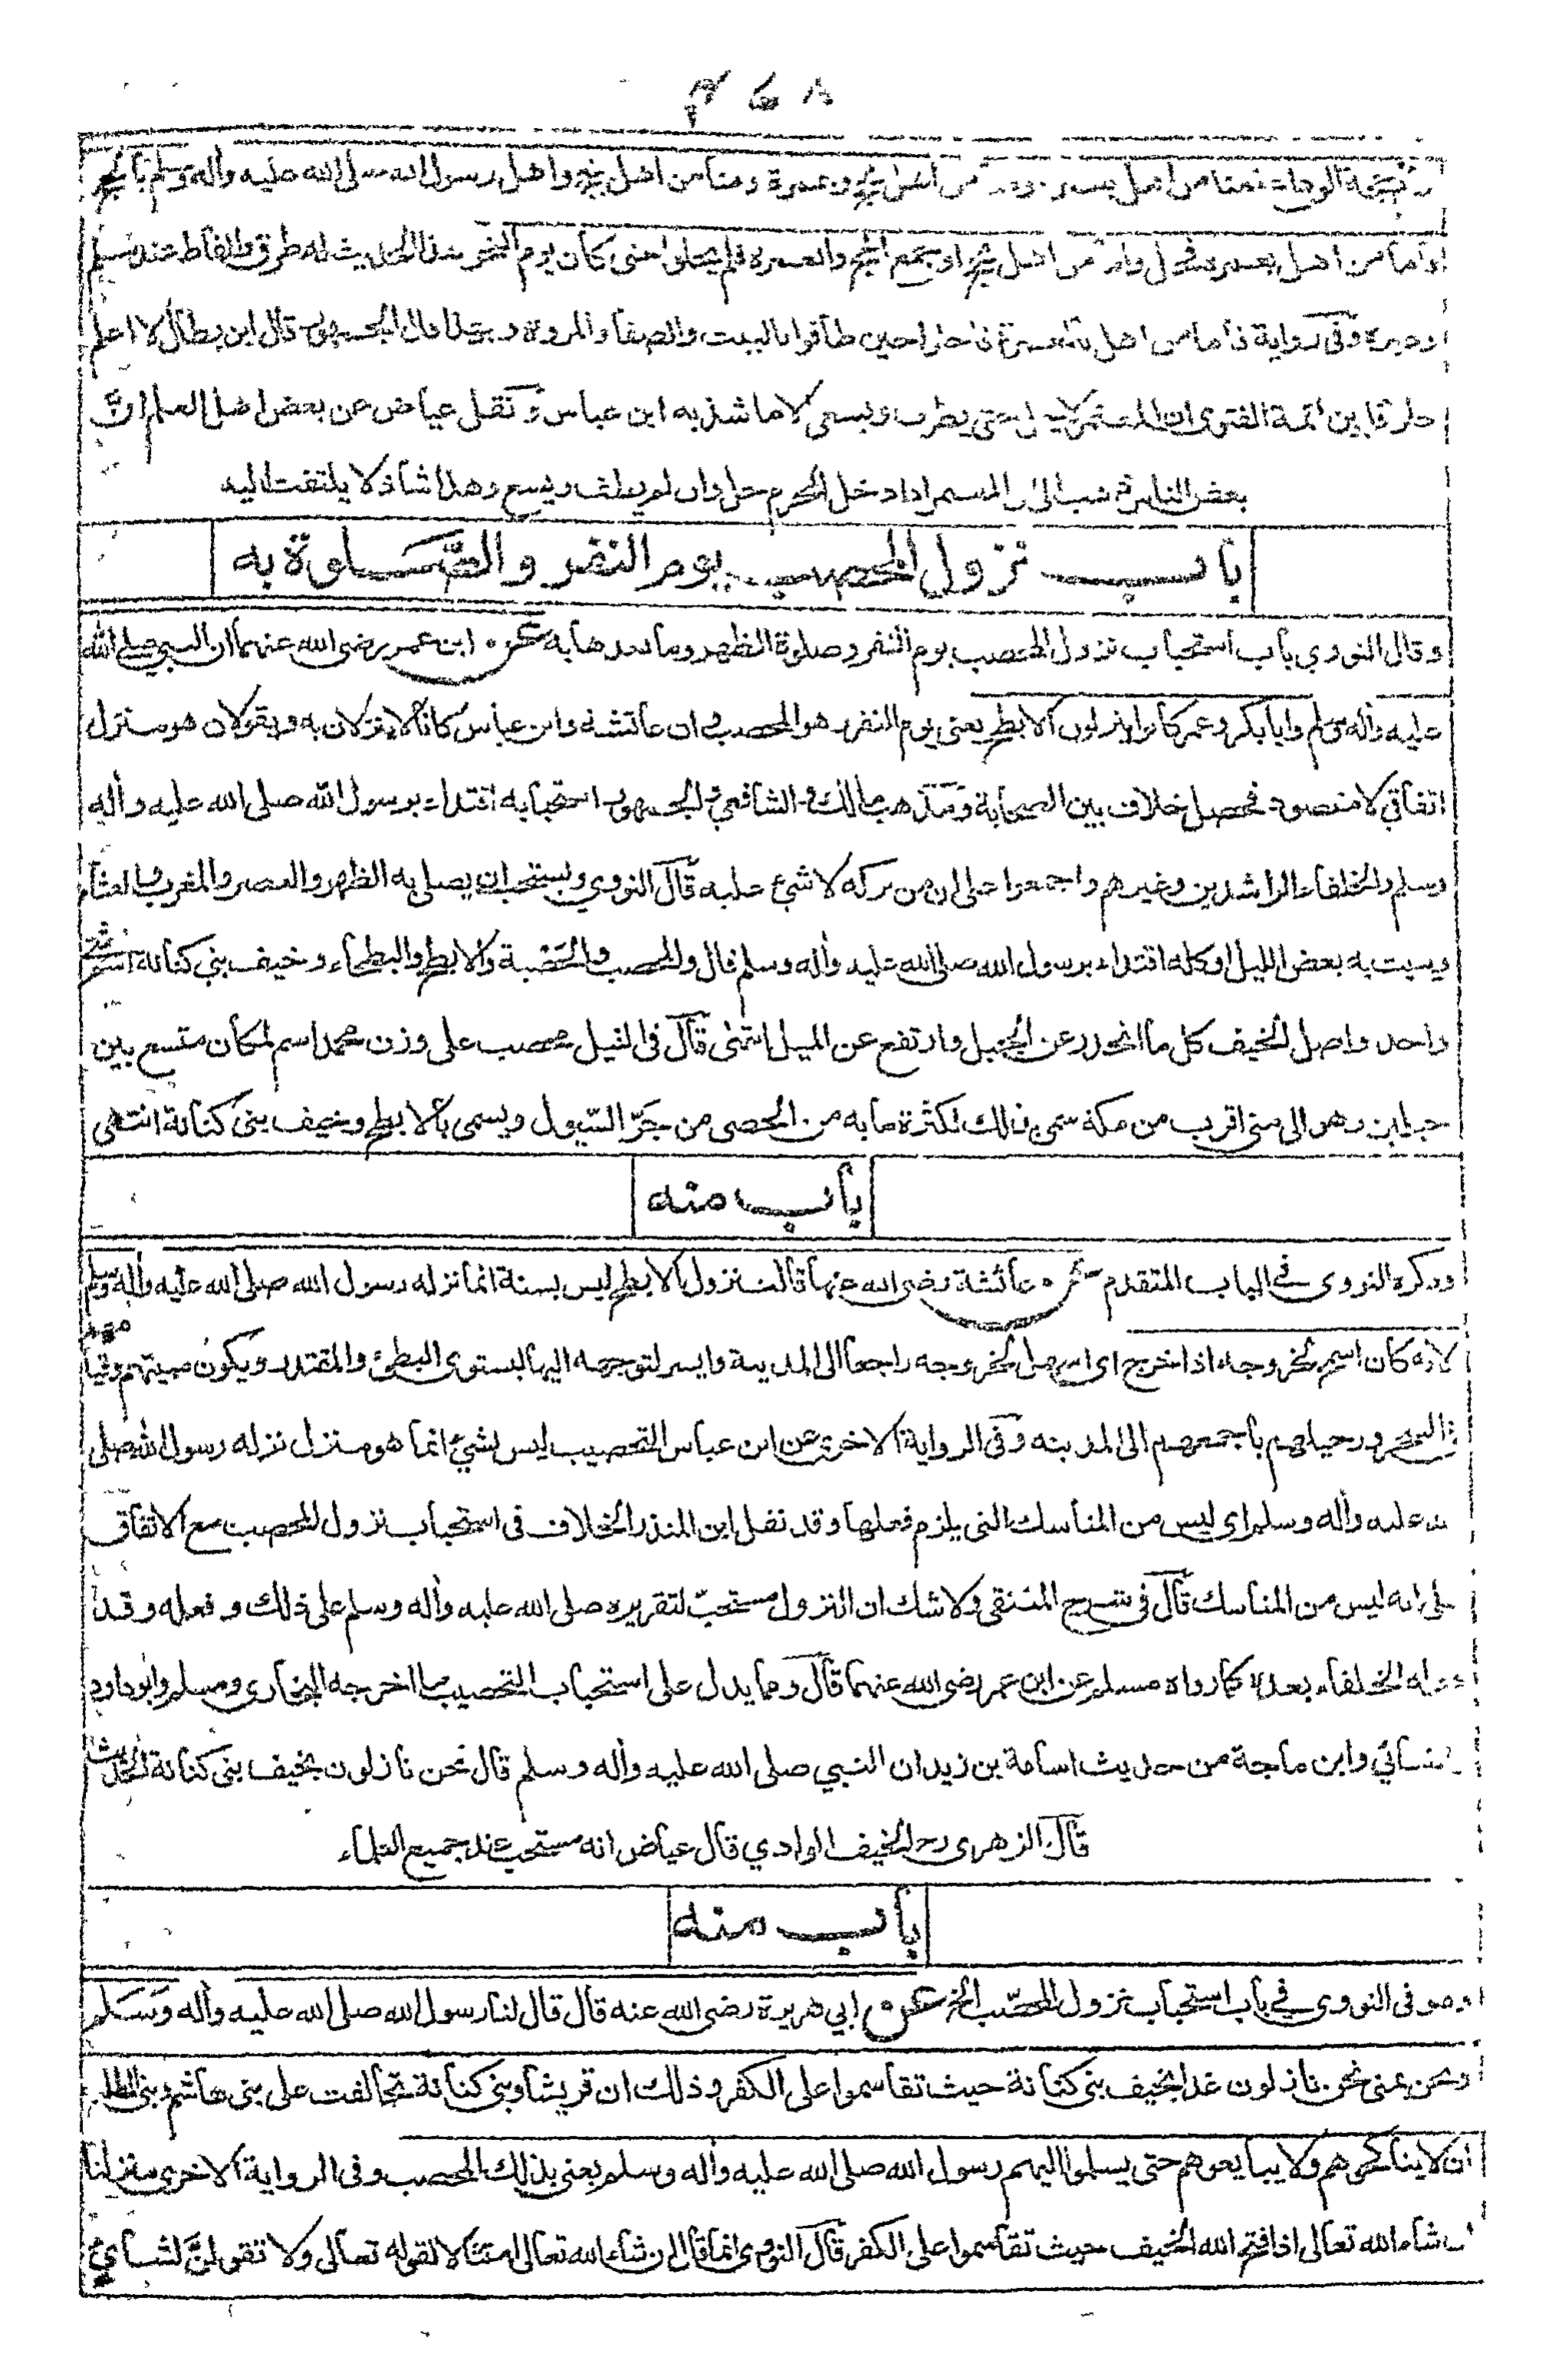 ٤٦٨
حجة الوداع فمنا من اهل بعمرة ومنا من اهل بحج وعمرة ومنا من اهل بحج واهل رسول الله صلى الله عليه وأله وسلم بالحج
وأما من اهل بعمرة فحل وأما من اهل بحج او جمع الحج والعمرة فلم يحلوا حتى كان يوم النحر هذا الحديث له طرق والفاظ عند مسلم
وغيره وفى رواية فأما من اهل بالعمرة فاحلوا حين طافوا بالبيت والصفا والمروة وبهذا قال الجمهور قال ابن بطال لا اعلم
خلافا بين ائمة الفتوى ان المعتمر لا يحل حتى يطوف ويسعى الا ما شذ به ابن عباس ونقل عياض عن بعض اهل العلم ان
بعض الناس ذهب الى ان المعتمر اذا دخل الحرم حل وان لم يطف ويسع وهذا شاذ لا يلتفت اليه
باب نزول المحصب يوم النفر والصلوة به
وقال النووي باب استحباب نزول المحصب يوم النفر وصلوة الظهر وما بعدها به عن ابن عمر رضى الله عنهما أن النبي صلى الله
عليه وأله وسلم وأبا بكر وعمر كانوا ينزلون الابطح يعنى يوم النفر وهو المحصب وان عائشة وابن عباس كانا لا ينزلان به ويقولان هو منزل
اتفاقي لا مقصود فحصل خلاف بين الصحابة ومذهب مالك والشافعي والجمهور استحبابه اقتداء برسول الله صلى الله عليه وأله
وسلم والخلفاء الراشدين وغيرهم واجمعوا على ان من تركه لا شئ عليه قال النووي ويستحب ان يصلى به الظهر والعصر والمغرب والعشاء
ويبيت به بعض الليل او كله اقتداء برسول الله صلى الله عليه وأله وسلم قال والمحصب والحصبة والابطح والبطحاء وخيف بني كنانة اسم لشئ
واحد واصل الخيف كل ما انحدر عن الجبل وارتفع عن الميل انتهى قال فى النيل محصب على وزن محمد اسم لمكان متسع بين
جبلين وهو الى منى اقرب من مكة سمى بذلك لكثرة ما به من الحصى من جر السيول ويسمى بالابطح وخيف بنى كنانة انتهى
باب منه
وذكره النووى فى الباب المتقدم عن عائشة رضى الله عنها قالت نزول الابطح ليس بسنة انما نزله رسول الله صلى الله عليه وأله وسلم
لانه كان اسمح لخروجه اذا خرج اى اسهل لخروجه راجعا الى المدينة وايسر لتوجهه اليها ليستوى البطئ والمقتدر ويكون مبيتهم وقيامهم
فى السحر ورحيلهم بأجمعهم الى المدينه وفى الرواية الاخرى عن ابن عباس التحصيب ليس بشئ انما هو منزل نزله رسول الله صلى
الله عليه وأله وسلم اى ليس من المناسك التى يلزم فعلها وقد نقل ابن المنذر الخلاف فى استحباب نزول المحصب مع الاتفاق
على انه ليس من المناسك قال فى شرح المنتقى ولا شك ان النزول مستحب لتقريره صلى الله عليه وأله وسلم على ذلك وفعله وقد
فعله الخلفاء بعده كما رواه مسلم عن ابن عمر رضى الله عنهما قال ومما يدل على استحباب التحصيب ما اخرجه البخارى ومسلم وابو داود
والنسائي وابن ماجة من حديث اسامة بن زيد ان النبي صلى الله عليه وأله وسلم قال نحن نازلون بخيف بنى كنانة الحديث
قال الزهرى رح الخيف الوادي قال عياض انه مستحب عند جميع العلماء
باب منه
وهو فى النووى في باب استحباب نزول المحصب الخ عن ابي هريرة رضى الله عنه قال قال لنا رسول الله صلى الله عليه وأله وسلم
ونحن بمنى نحن نازلون غدا بخيف بنى كنانة حيث تقاسموا على الكفر وذلك ان قريشا وبنى كنانة تحالفت على بنى هاشم وبنى المطلب
ان لا يناكحوهم ولا يبايعوهم حتى يسلموا اليهم رسول الله صلى الله عليه وأله وسلم يعنى بذلك المحصب وفى الرواية الاخرى منزلنا
ان شاء الله تعالى اذا فتح الله الخيف حيث تقاسموا على الكفر قال النووى انما قال ان شاء الله تعالى امتثالا لقوله تعالى ولا تقولن لشائ